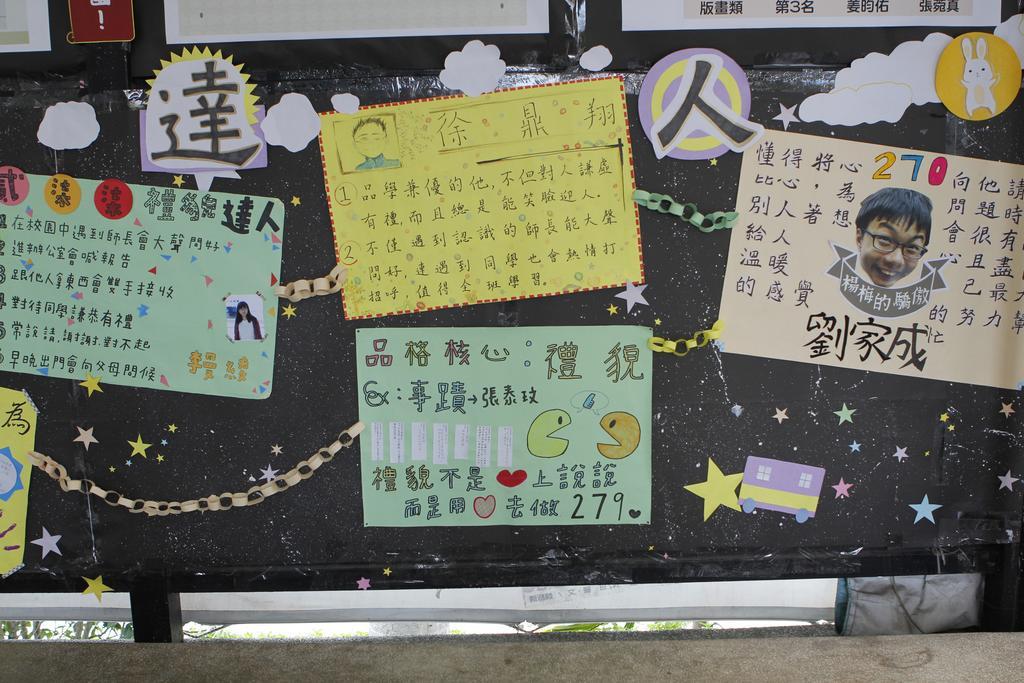 版畫類 第3名 姜昀佑 張菀真
！
達
人
貳 柒 柒 禮貌達人
在校園中遇到師長會大聲問好
進辦公室會喊報告
跟他人拿東西會雙手接收
對待同學謙恭有禮
常說請,謝謝,對不起
早晚出門會向父母問候
徐鼎翔
① 品學兼優的他，不但對人謙虛
有禮，而且總是能笑臉迎人。
② 不僅遇到認識的師長能大聲
問好，連遇到同學也會熱情打
招呼，值得全班學習。
270
懂得將心
比心，為
別人著想
給人
溫暖
的感覺
向他請
問題時
會很有
且盡
己最大
的努力幫
忙
楊梅的驕傲
劉家成
品格核心：禮貌
Ex：事蹟→張泰玟
禮貌不是❤上說說
而是用♡去做 279
為